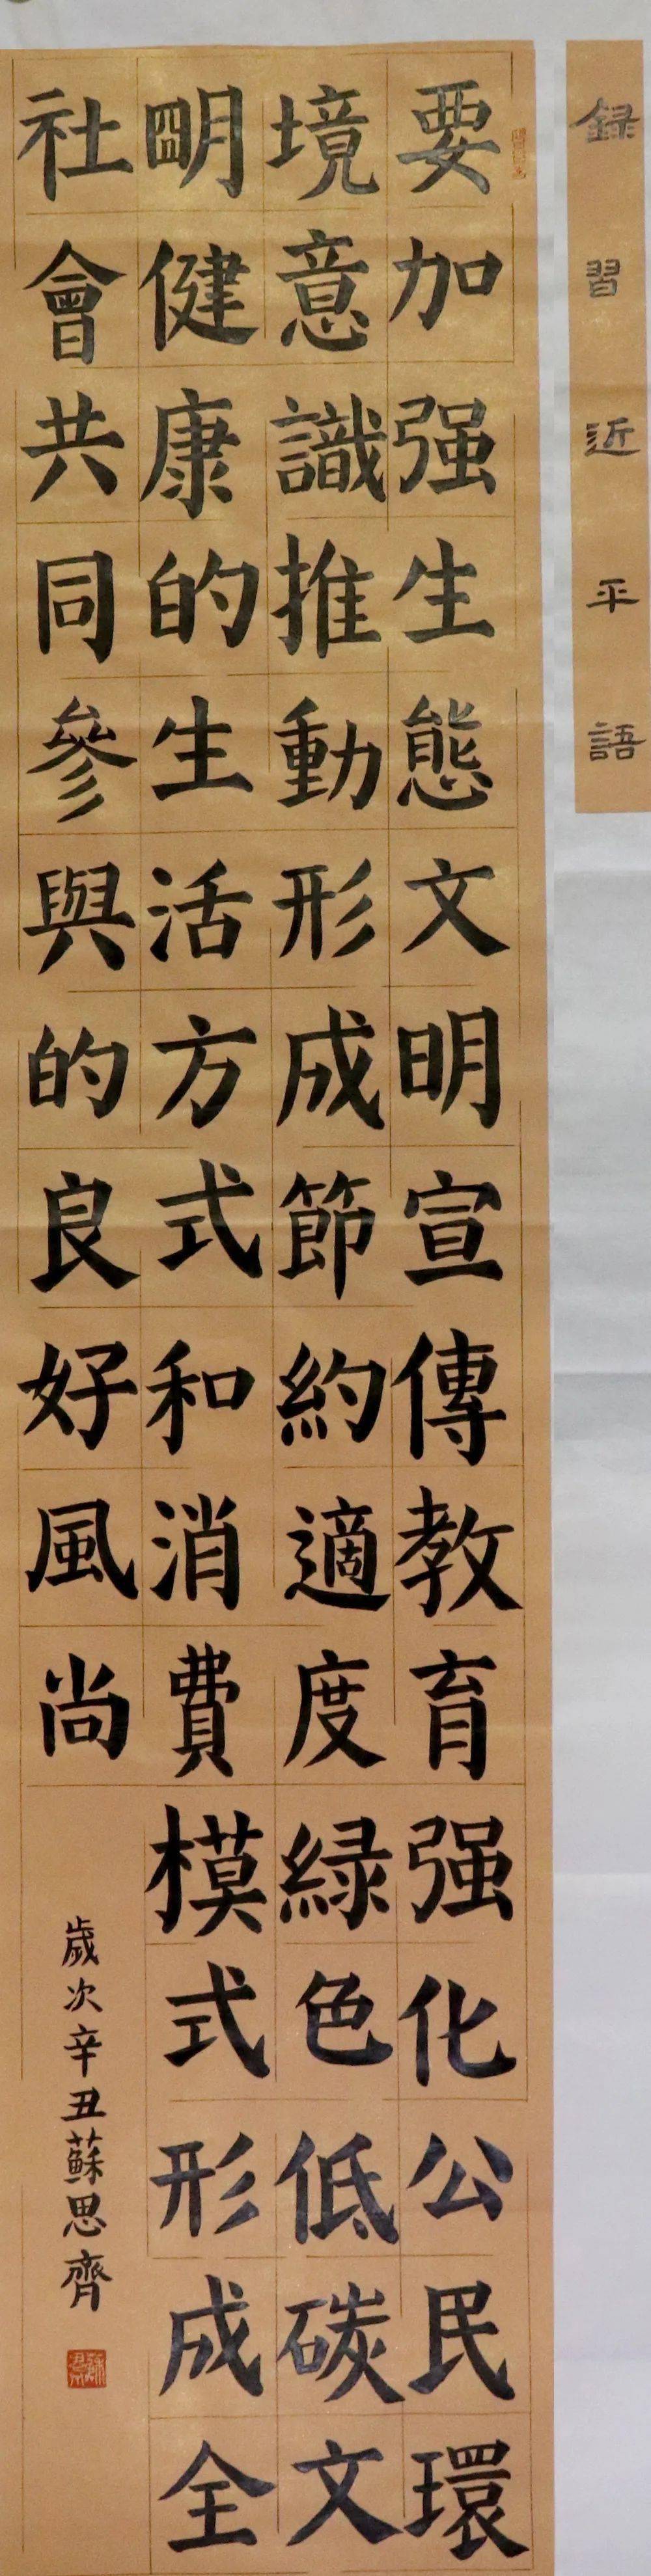 録習近平語
要加强生態文明宣傳教育强化公民環
境意識推動形成節約適度緑色低碳文
明健康的生活方式和消費模式形成全
社會共同參與的良好風尚
歲次辛丑蘇思齊